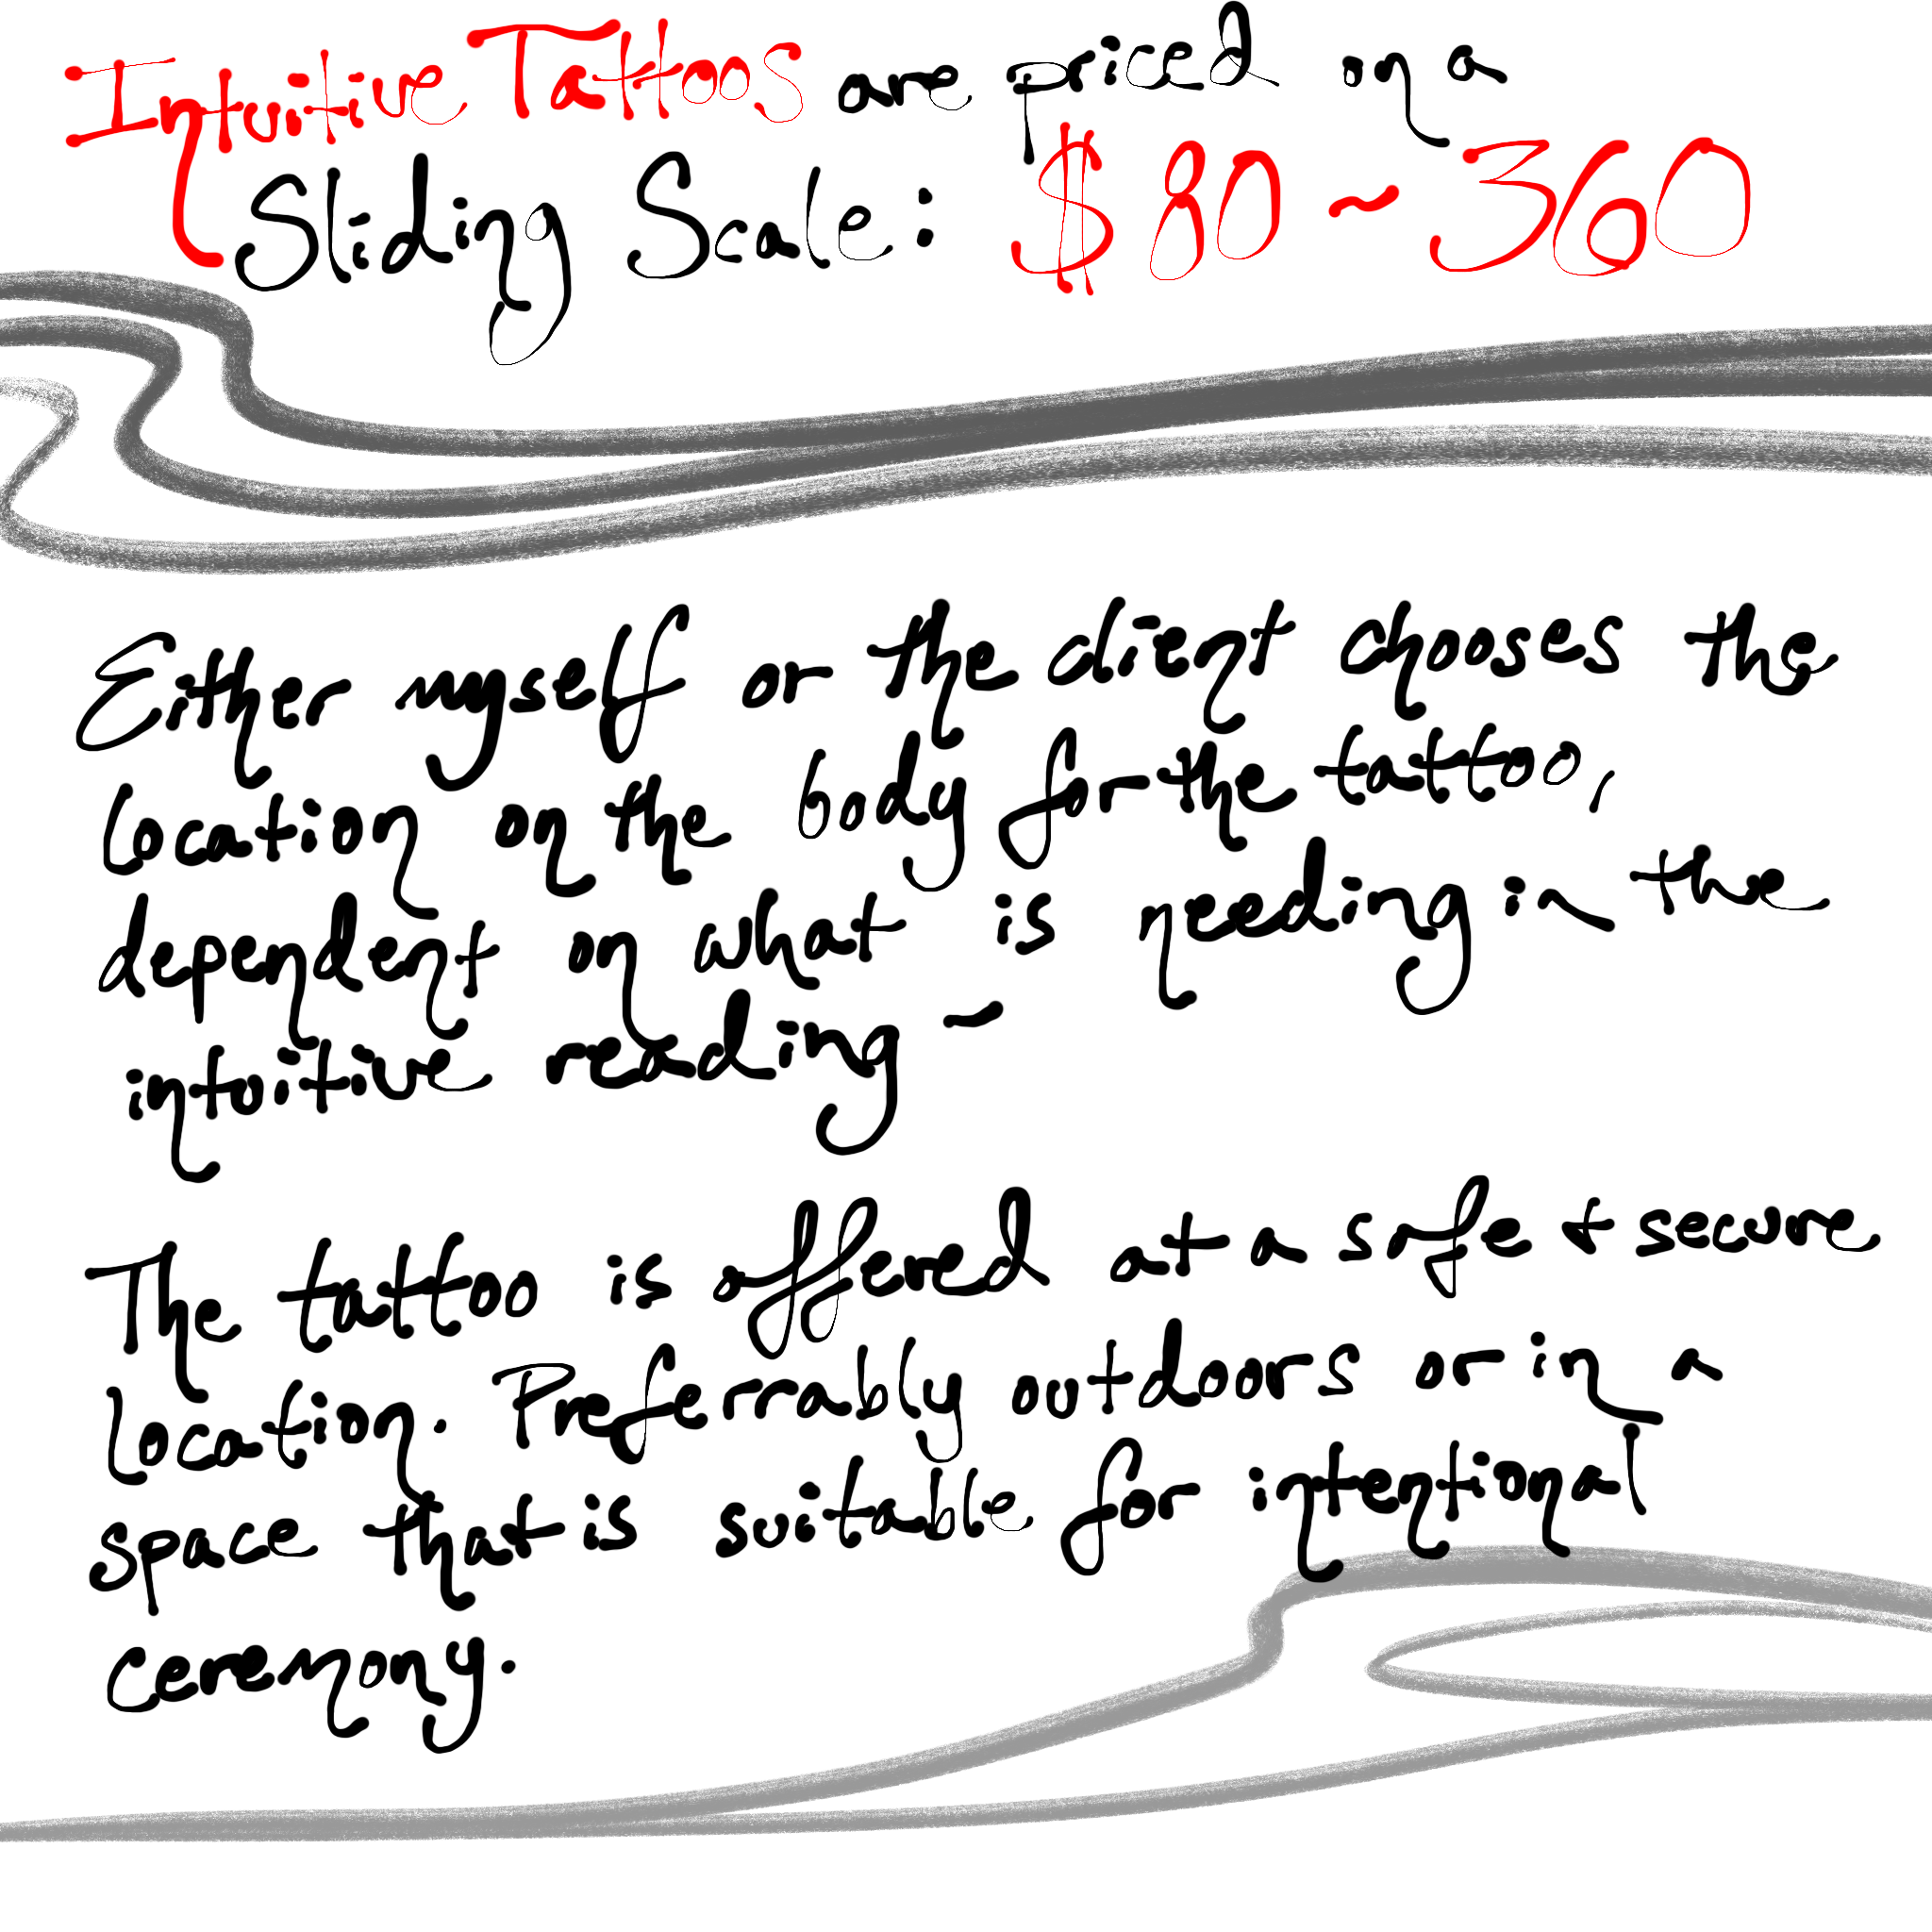 Intuitive Tattoos are priced on a
Sliding Scale: $80 ~ 360
Either myself or the client chooses the
location on the body for the tattoo,
dependent on what is needing in the
intuitive reading ~
The tattoo is offered at a safe + secure
location. Preferrably outdoors or in a
space that is suitable for intentional
ceremony.